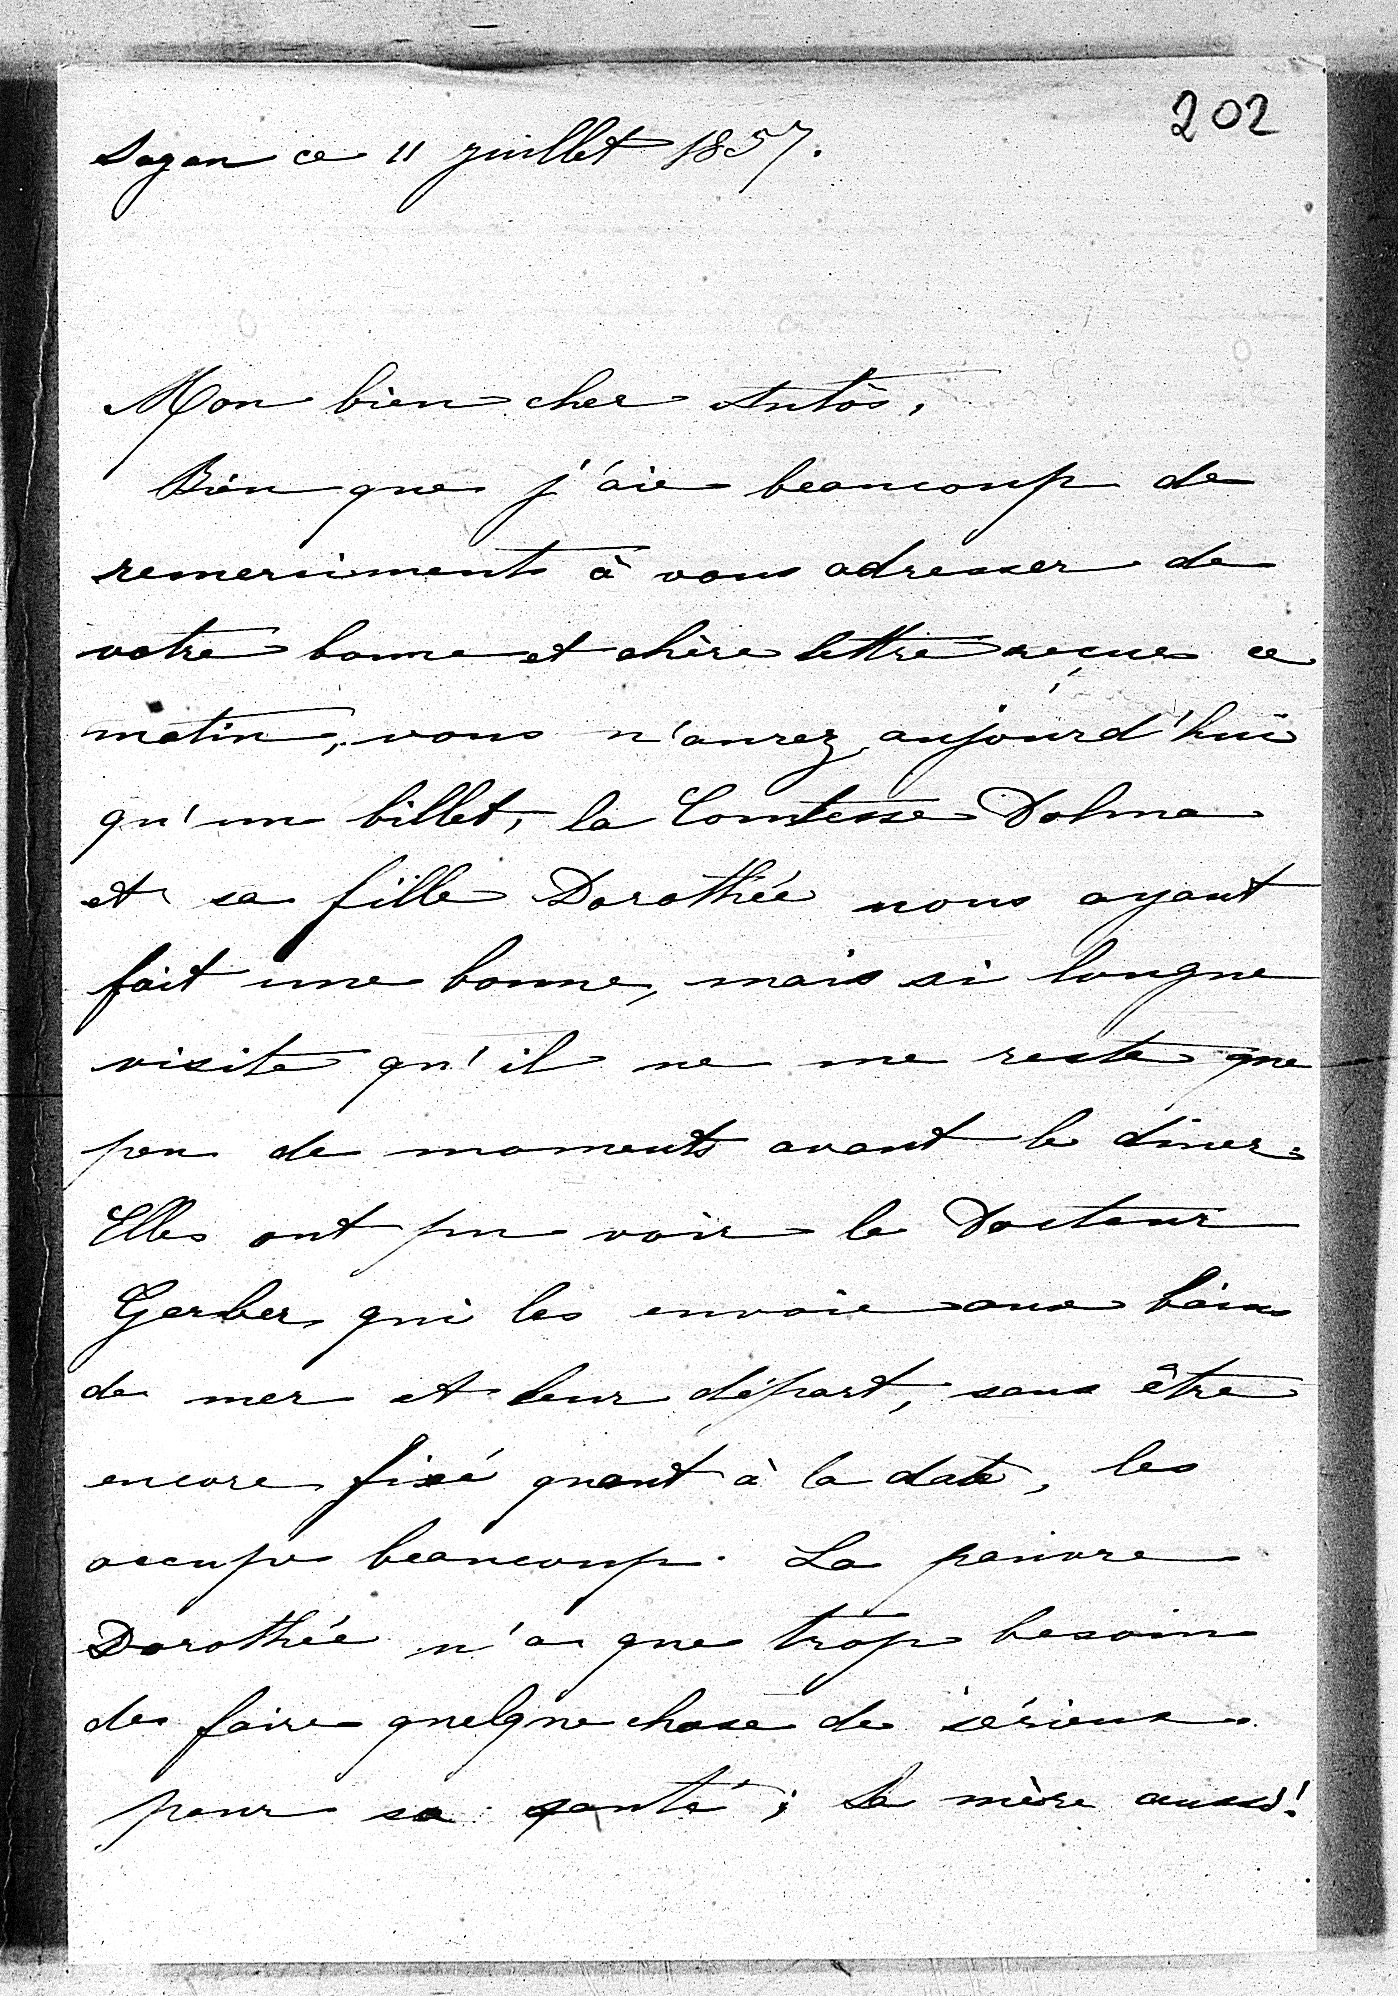 202
Sagan ce 11 juillet 1857.
Mon bien cher Antos,
Bien que j'aie beaucoup de
remerciments à vous adresser de
votre bonne et chère lettre reçue ce
matin, vous n'aurez aujourd'hui
qu'un billet, la Comtesse Dohna
et sa fille Dorothée nous ayant
fait une bonne, mais si longue
visite qu'il ne me reste que
peu de moments avant le dîner.
Elles ont pu voir le Docteur
Gerber qui les envoie aux bains
de mer et leur départ, sans être
encore fixé quant à la date, les
occupe beaucoup. La pauvre
Dorothée n'a que trop besoin
de faire quelque chose de sérieux
pour sa santé; sa mère aussi!